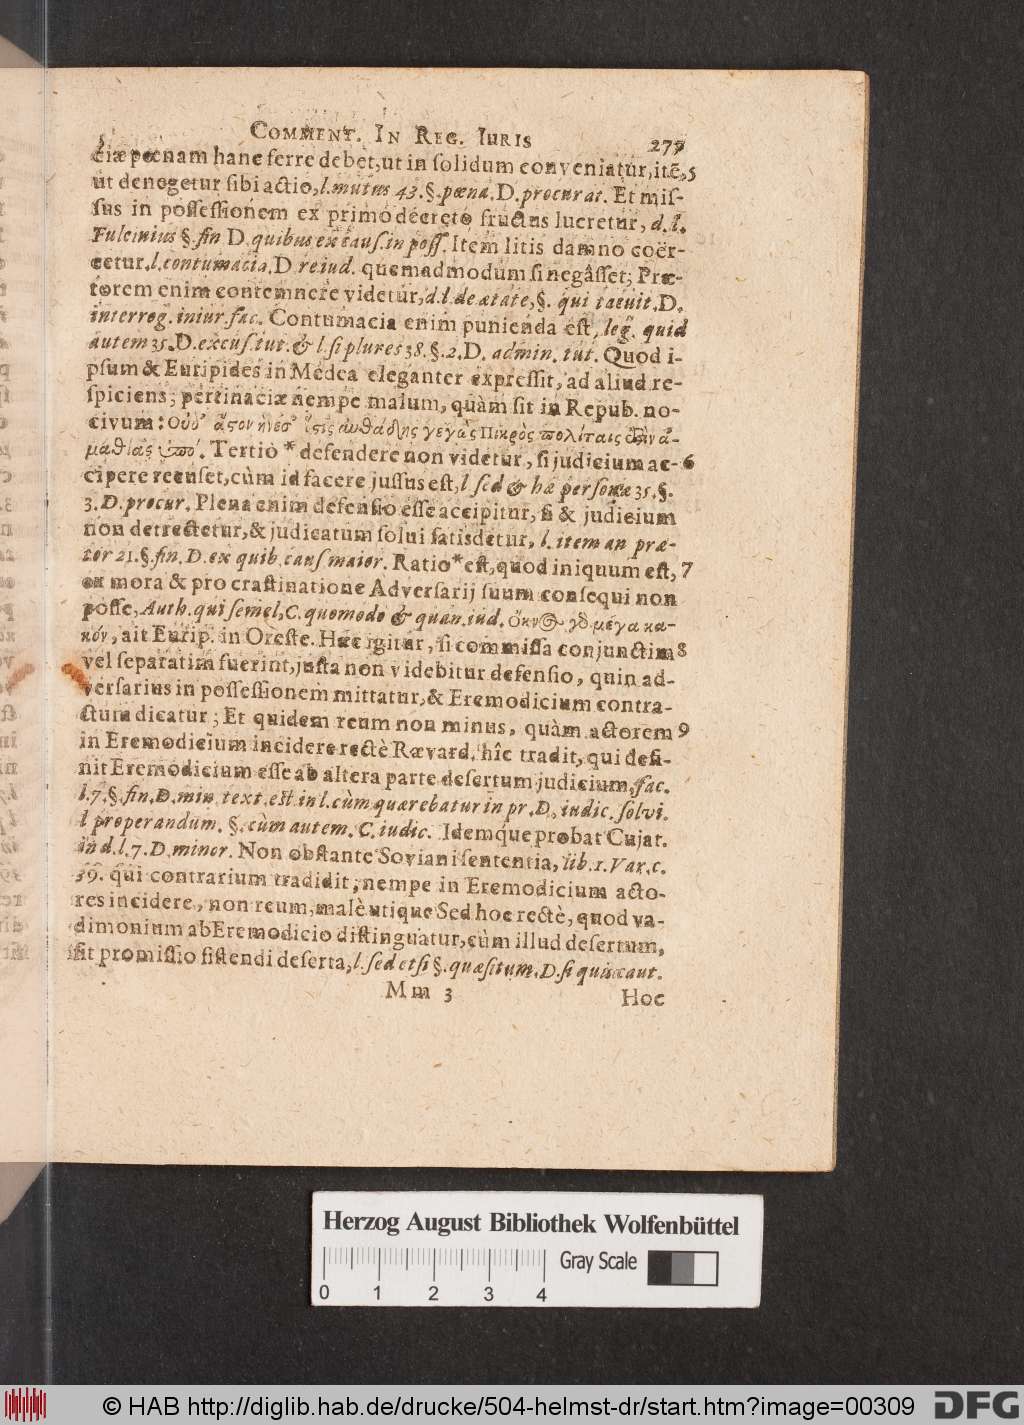 COMMENT. IN REG. IURIS 277
ciæ pœnam hanc ferre debet, ut in solidum conveniatur, itē, 5
ut denegetur sibi actio, l. mutus 43. §. pœna. D. procurat. Et mis-
sus in possessionem ex primo decreto fructus lucretur, d. l.
Fulcinius §. fin D. quibus ex caus. in poss. Item litis damno coër-
cetur, l. contumacia. D re iud. quemadmodum si negâsset; Præ-
torem enim contemnere videtur, d. l. de ætate, §. qui tacuit. D.
interrog. in iur. fac. Contumacia enim punienda est, leg. quid
autem 35. D. excus. tut. & l. si plures 38. §. 2. D. admin. tut. Quod i-
psum & Euripides in Medea eleganter expressit, ad aliud re-
spiciens; pertinaciæ nempe malum, quàm sit in Repub. no-
civum: αὐθάδης γεγὼς πικρὸς πολίταις
μαθίας ὑπό. Tertiò * defendere non videtur, si judicium ac- 6
cipere recuset, cùm id facere jussus est, l sed & hæ personæ 35. §.
3. D. procur. Plena enim defensio esse accipitur, si & judicium
non detrectetur, & judicatum solui satisdetur, l. item an præ-
tor 21. §. fin. D. ex quib. caus maior. Ratio * est, quod iniquum est, 7
ex mora & pro crastinatione Adversarij suum consequi non
posse, Auth. qui semel, C. quomodo & quan. iud. μέγα κα-
κόν, ait Eurip. in Oreste. Hæc igitur, si commissa conjunctim 8
vel separatim fuerint, justa non videbitur defensio, quin ad-
versarius in possessionem mittatur, & Eremodicium contra-
ctum dicatur; Et quidem reum non minus, quàm actorem 9
in Eremodicium incidere rectè Rævard. hîc tradit, qui defi-
nit Eremodicium esse ab altera parte desertum judicium, fac.
l. 7. §. fin. D. min. text. est in l. cùm quærebatur in pr. D. iudic. solvi.
l properandum. §. cùm autem. C. iudic. Idemque probat Cujat.
in d. l. 7. D. minor. Non obstante Soviani sententia, lib. 1. Var. c.
39. qui contrarium tradidit, nempe in Eremodicium acto-
res incidere, non reum, malè utique Sed hoc rectè, quod va-
dimonium ab Eremodicio distinguatur, cùm illud desertum,
sit promissio sistendi deserta, l. sed etsi §. quæsitum. D. si quis caut.
Mm 3 Hoc
Herzog August Bibliothek Wolfenbüttel
Gray Scale
0 1 2 3 4
© HAB http://diglib.hab.de/drucke/504-helmst-dr/start.htm?image=00309 DFG